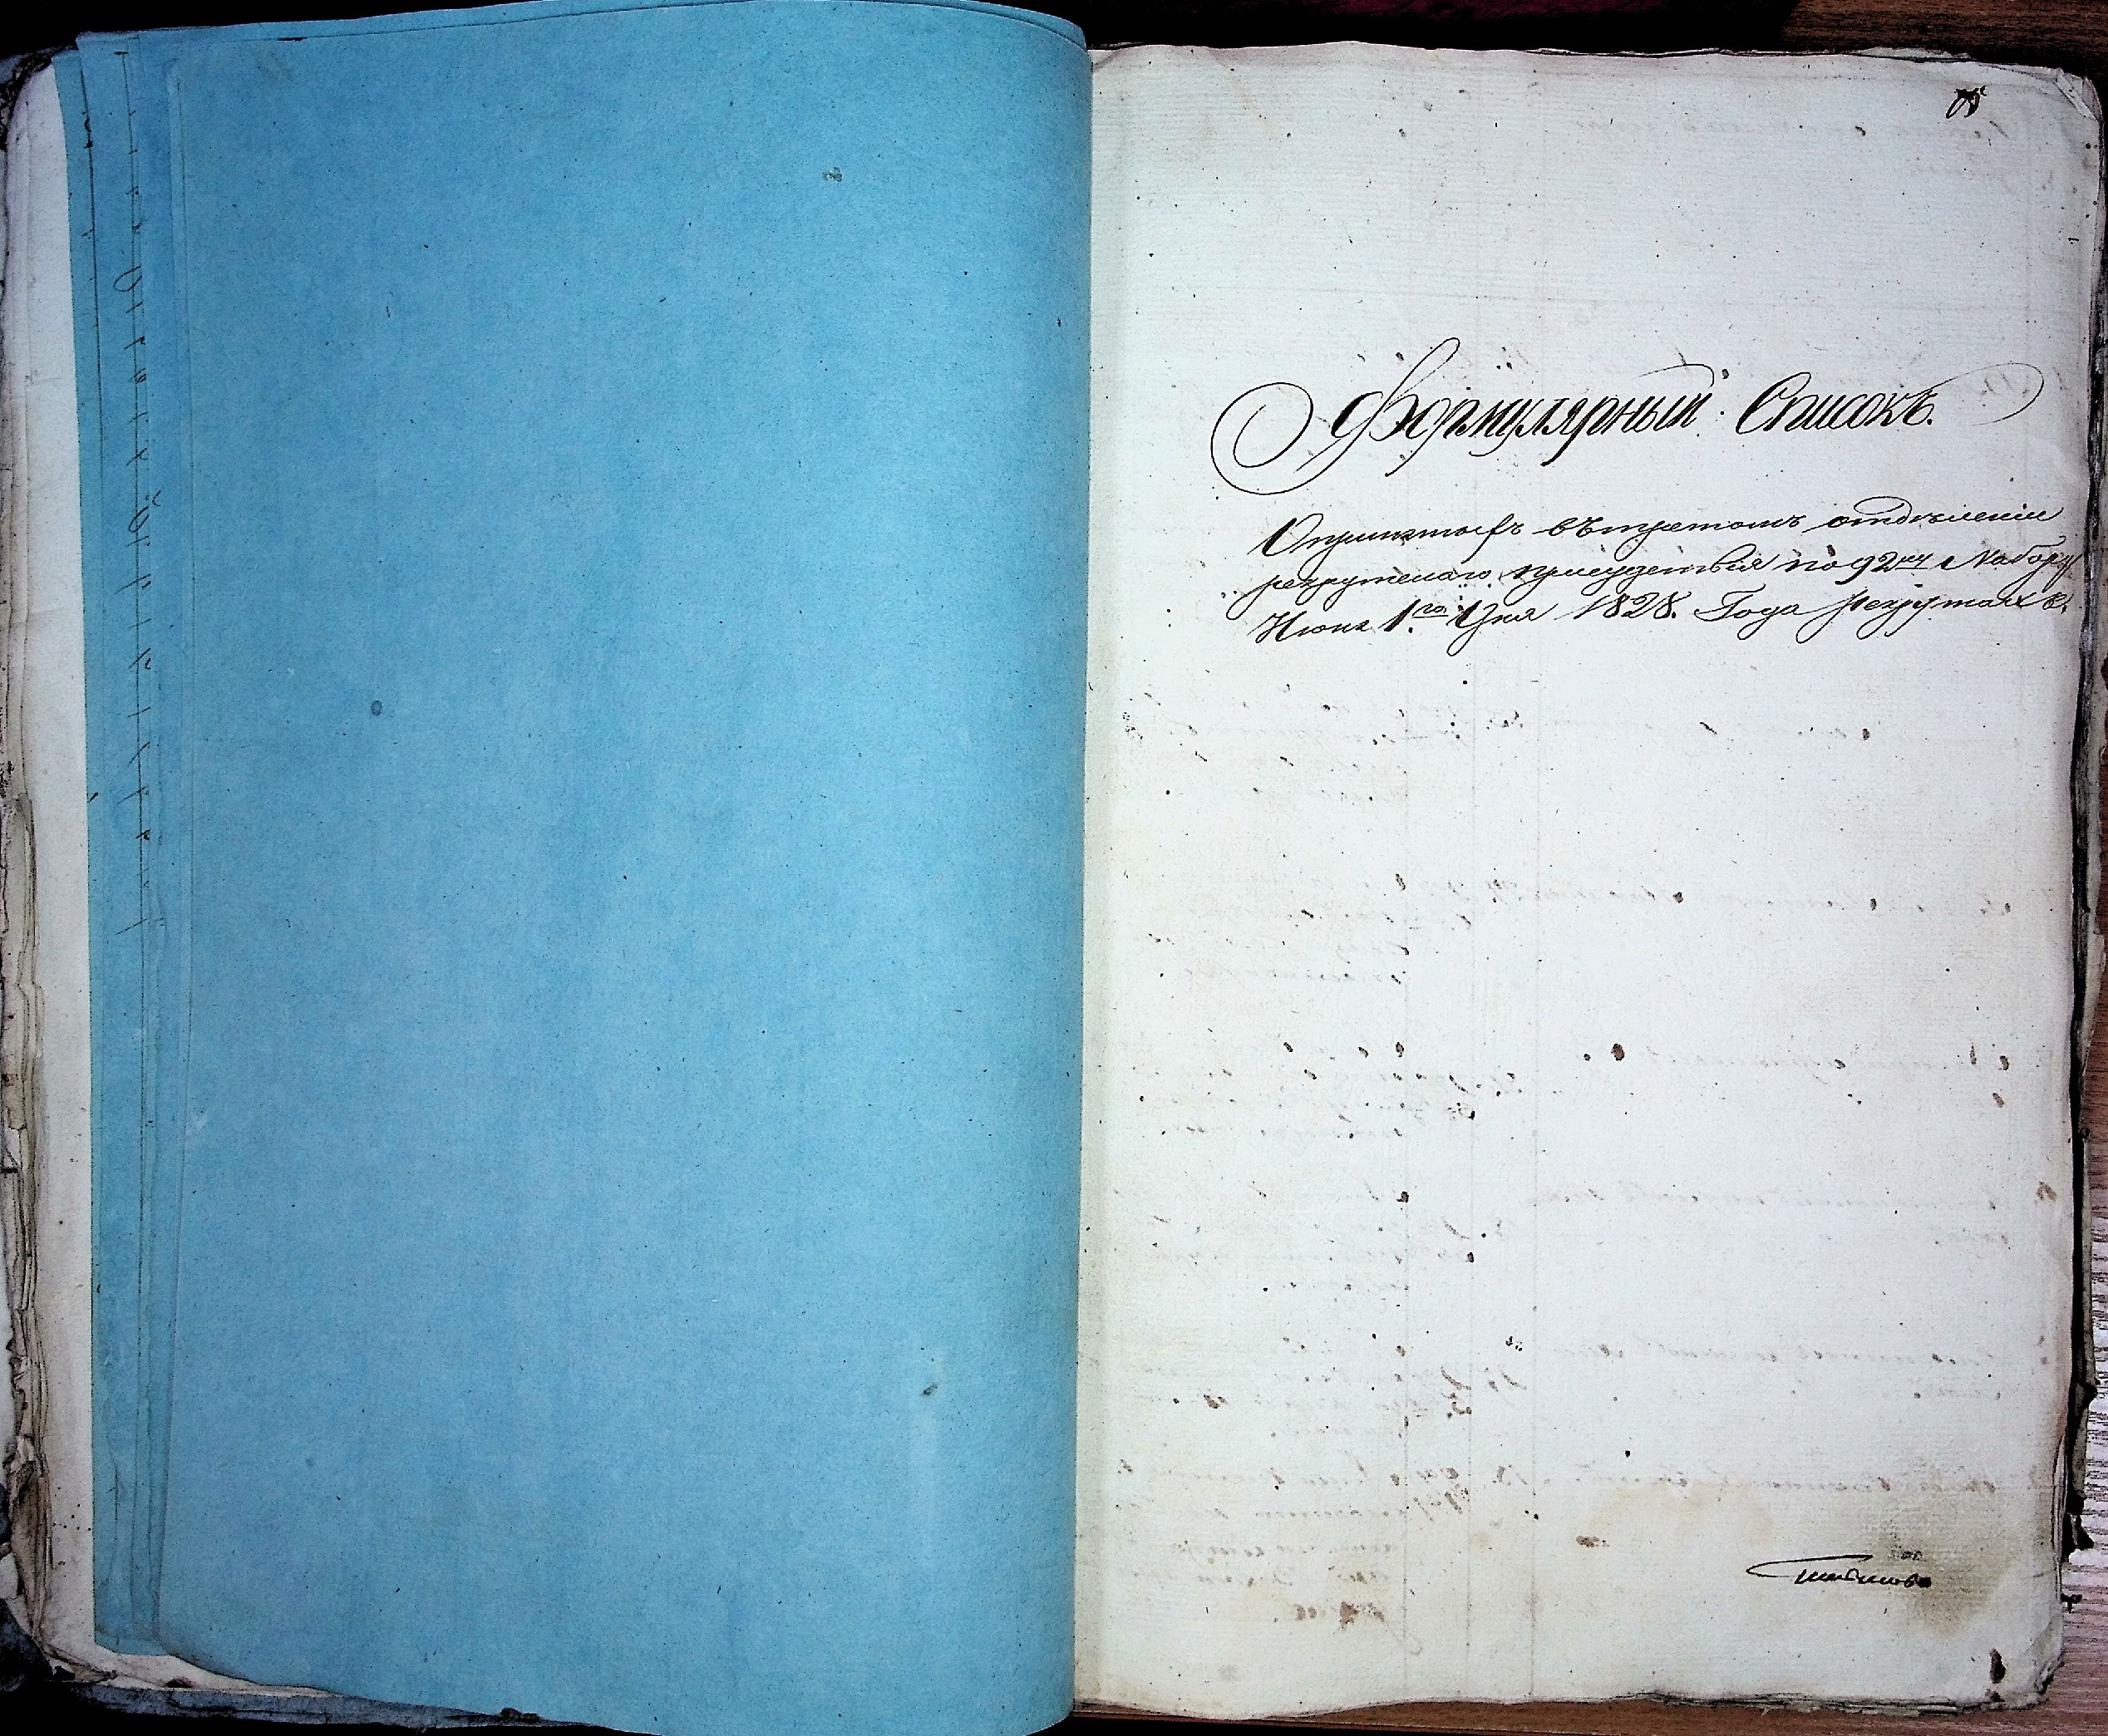 Формулярный Списокъ.
Опринятыхъ вътретьемъ отделении
рекрутскаго присудствия по 92му Набору
Июня 1го Дня 1828. Года рекрутахъ.